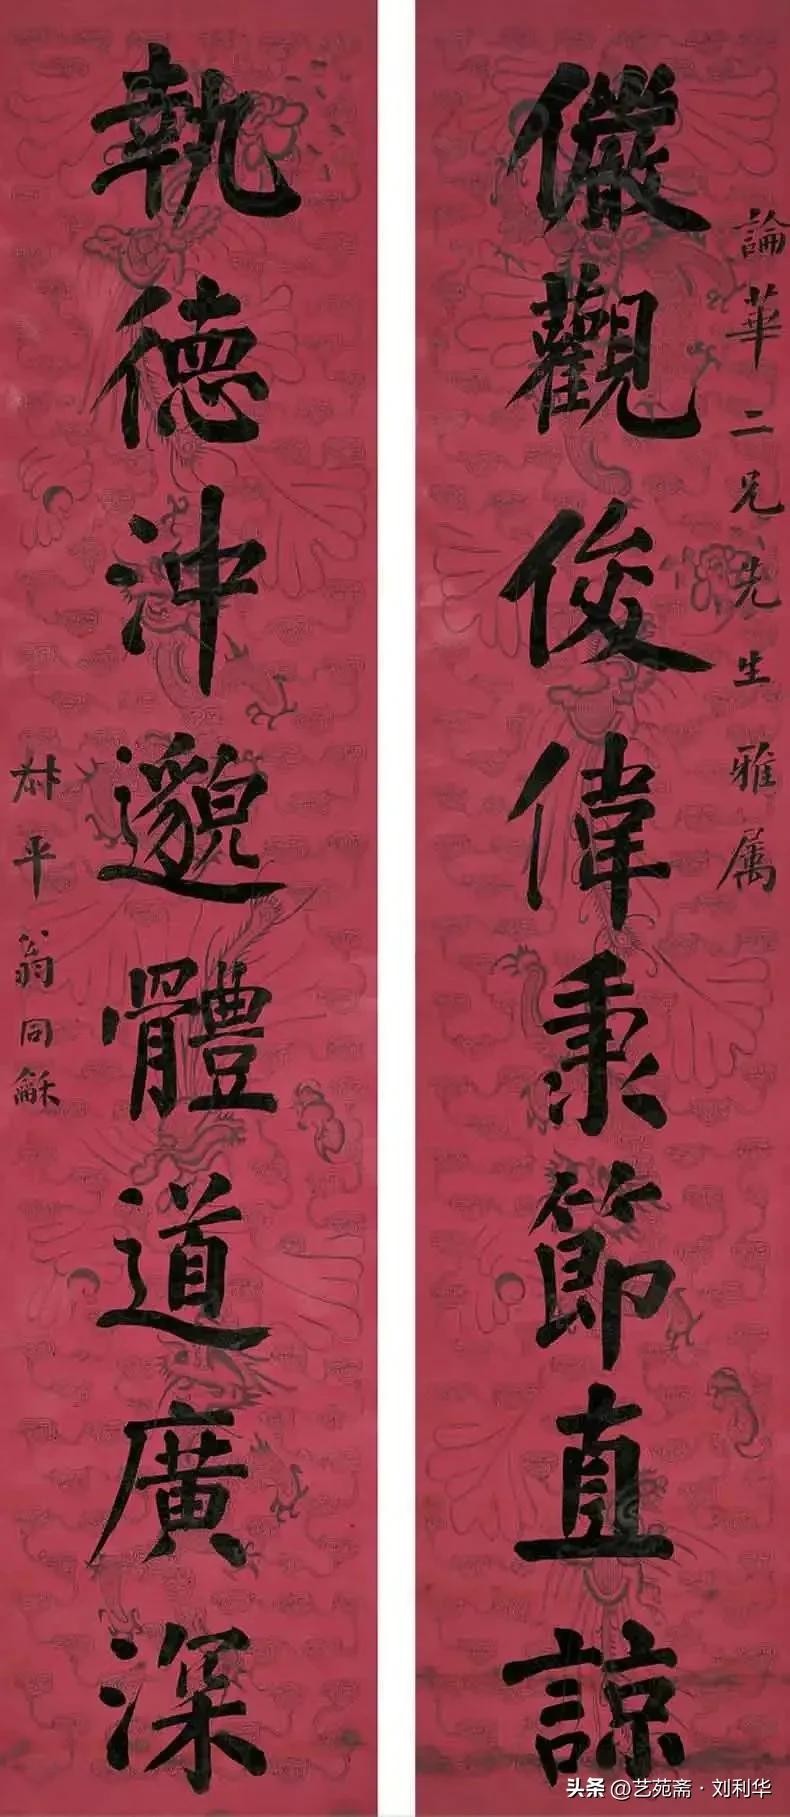 論華二兄先生雅属
儼觀俊偉秉節直諒
執德沖邈體道廣深
叔平翁同龢
头条 @艺苑斋·刘利华